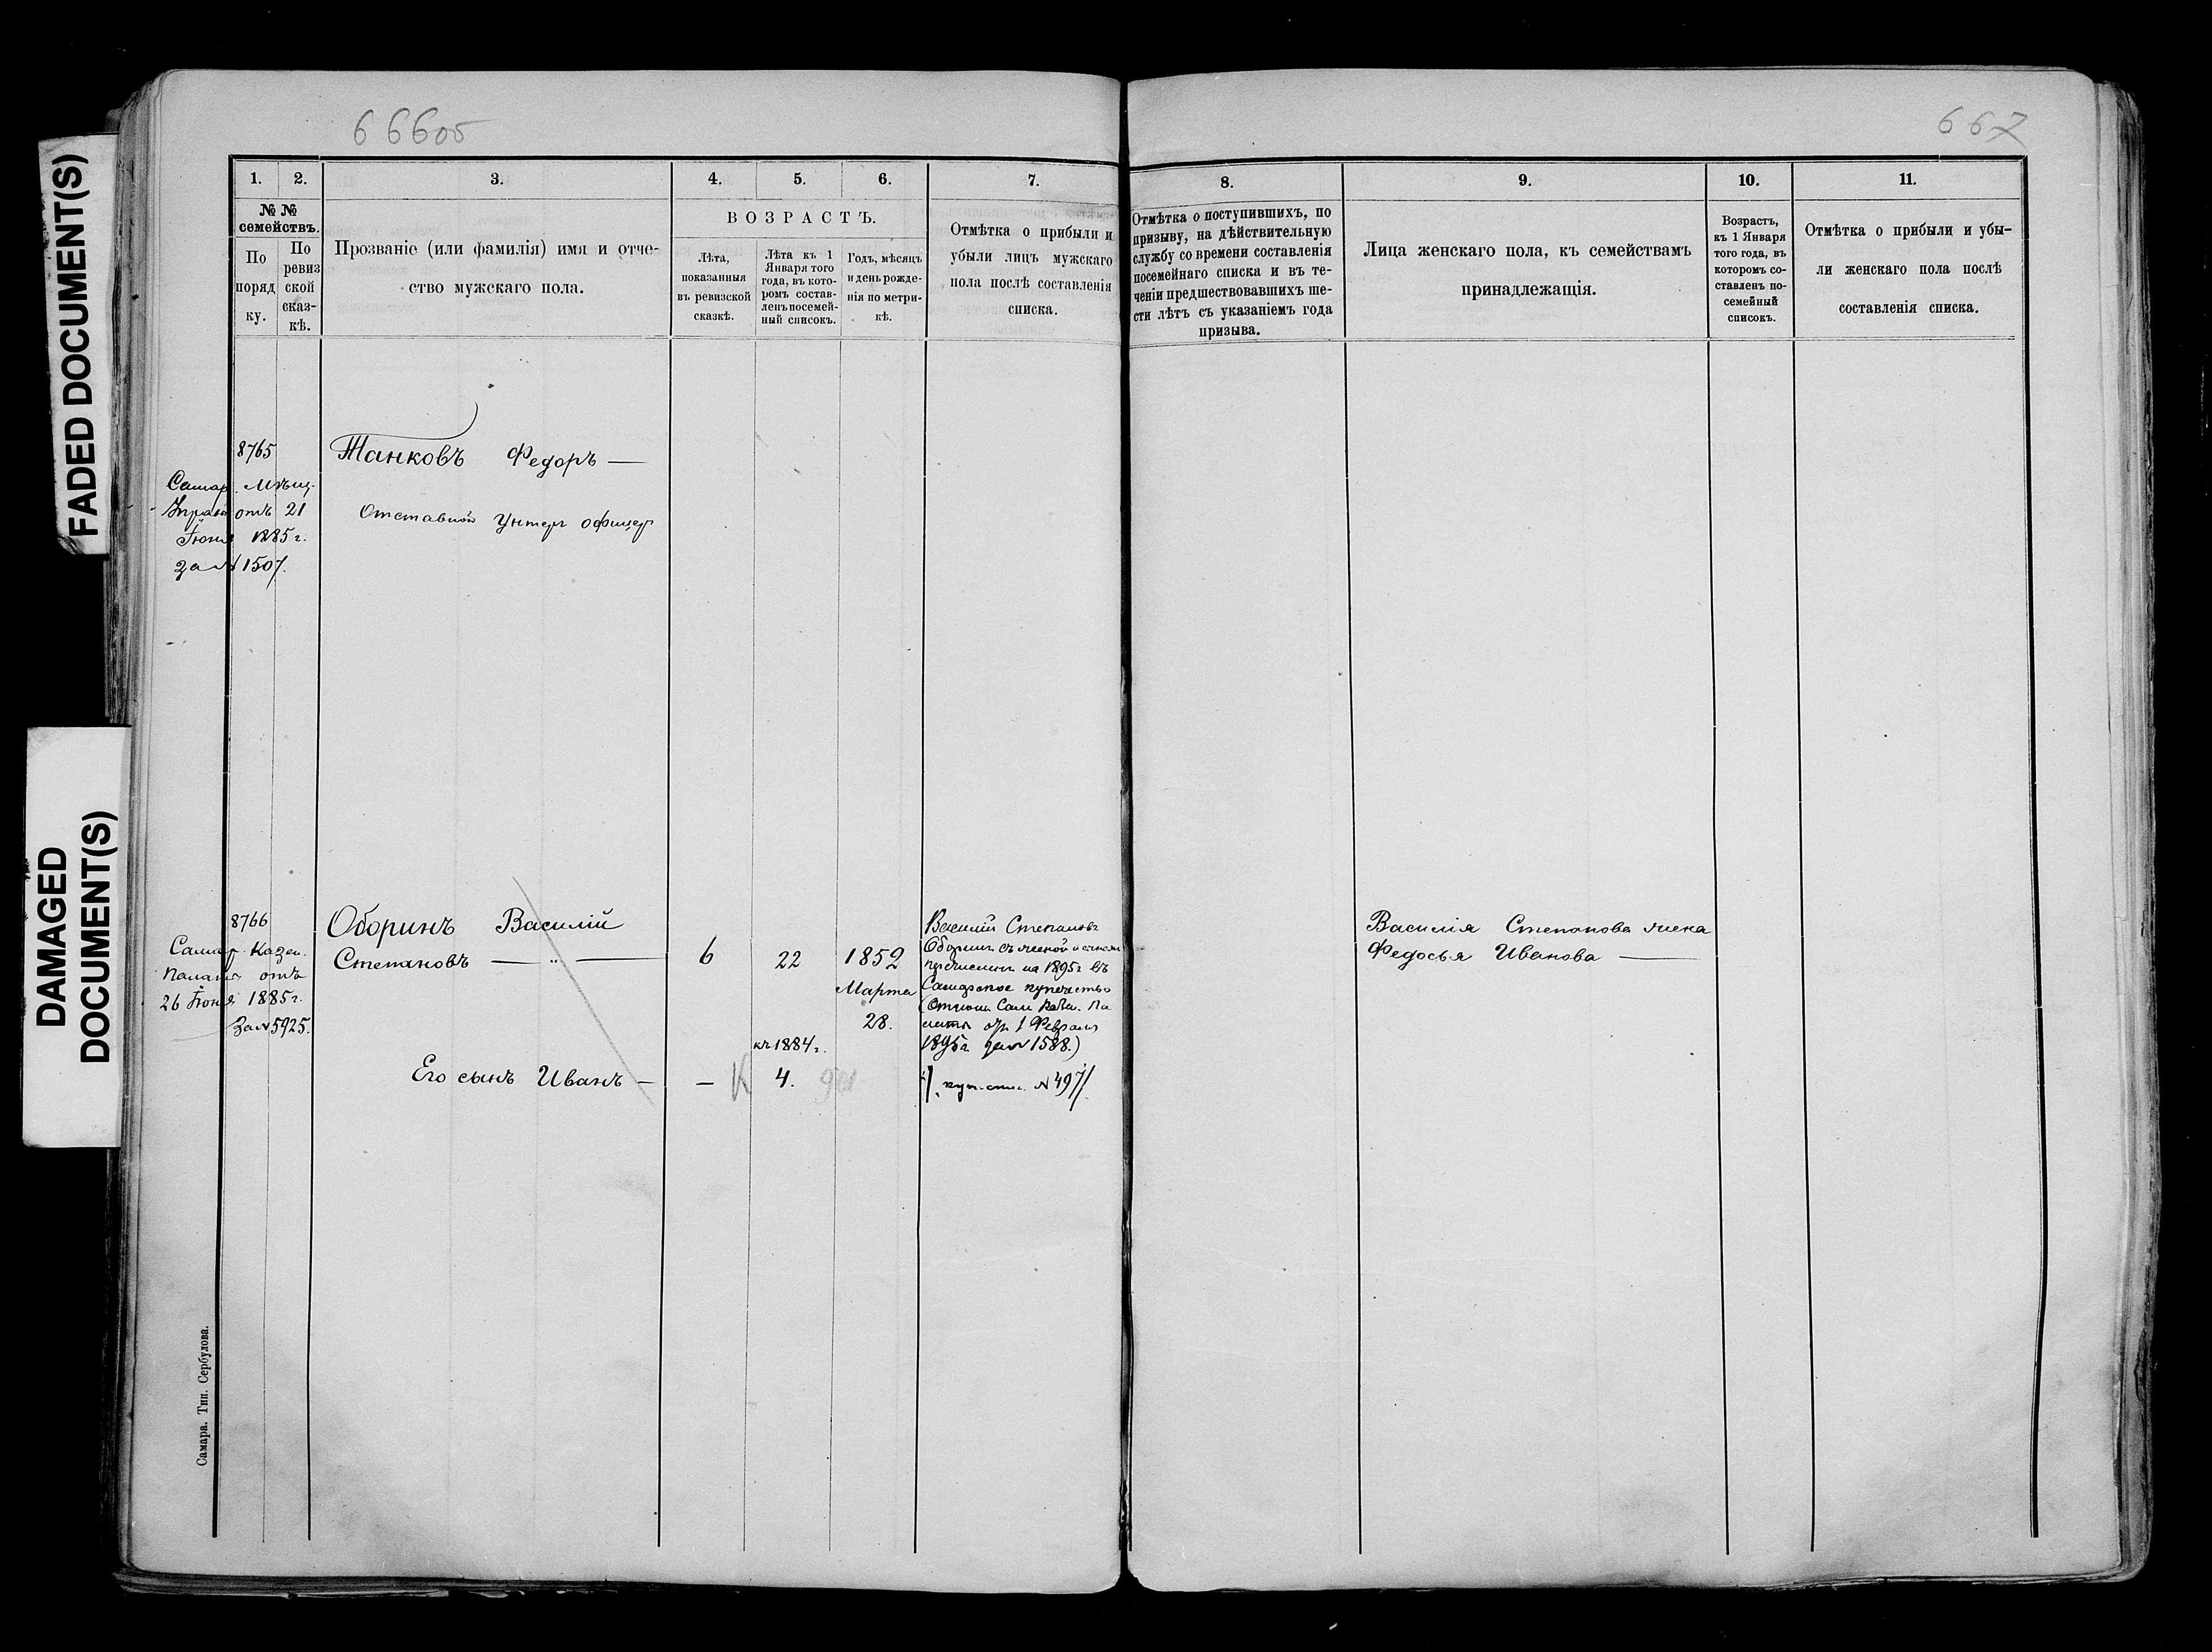 66605
667
FADED DOCUMENT(S)
DAMAGED
DOCUMENT(S)
1. 2. 3. 4. 5. 6. 7. 8. 9. 10. 11.
№ №
семействъ.
По
поряд
ку.
По
ревиз
ской
сказ-
кѣ.
Прозваніе (или фамилія) имя и отче-
ство мужскаго пола.
ВОЗРАСТЪ.
Лѣта,
показанныя
въ ревизской
сказкѣ.
Лѣта къ 1
Января того
года, въ кото-
ромъ состав-
ленъ посемей-
ный списокъ.
Годъ, мѣсяцъ
и день рожде-
нія по метри-
кѣ.
Отмѣтка о прибыли и
убыли лицъ мужскаго
пола послѣ составленія
списка.
Отмѣтка о поступившихъ, по
призыву, на дѣйствительную
службу со времени составленія
посемейнаго списка и въ те-
ченіи предшествовавшихъ ше-
сти лѣтъ съ указаніемъ года
призыва.
Лица женскаго пола, къ семействамъ
принадлежащія.
Возрастъ,
къ 1 Января
того года, въ
которомъ со-
ставленъ по-
семейный
списокъ.
Отмѣтка о прибыли и убы-
ли женскаго пола послѣ
составленія списка.
8765
Самар. Мѣщ.
Управ отъ 21
Іюня 1885 г.
за № 1507.
Танковъ Федоръ —
Отставной Унтер офицер
8766
Самар. Казен.
Палаты отъ
26 Іюня 1885 г.
За № 5925.
Оборинъ Василій
Степановъ — „ —
6
22
1852
Марта
28.
къ 1884 г.
Его сынъ Иванъ —
—
4.
Василій Степановъ
Оборинъ съ женой и сыномъ
перечислен на 1895 г въ
Самарское купечество
(Отнош Сам Каз. Па
латы отъ 1 Февраля
1895 г. за № 1588.)
куп. спис. № 497
Василія Степанова жена
Федосья Иванова —
Самара. Тип. Сербулова.